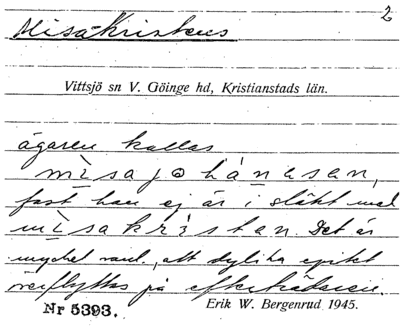 2
Misa-Kristens
Vittsjö sn V. Göinge hd, Kristianstads län.
ägaren kallas
mìsajohánəsan,
fast han ej är i släkt med
mìsakrìstan. Det är
mycket vanl., att dylika epitet
överflyttas på efterträdaren.
Nr 5393. Erik W. Bergenrud 1945.